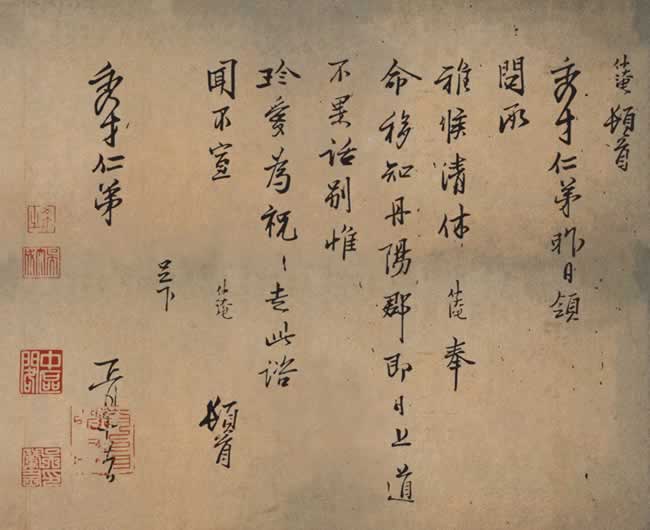 頓首
秀才仁弟昨日領
問承
雅候清休 奉
命移知丹陽郡即日上道
不果話別惟
珍愛為祝〻走此諮
聞不宣
頓首
足下
秀才仁弟